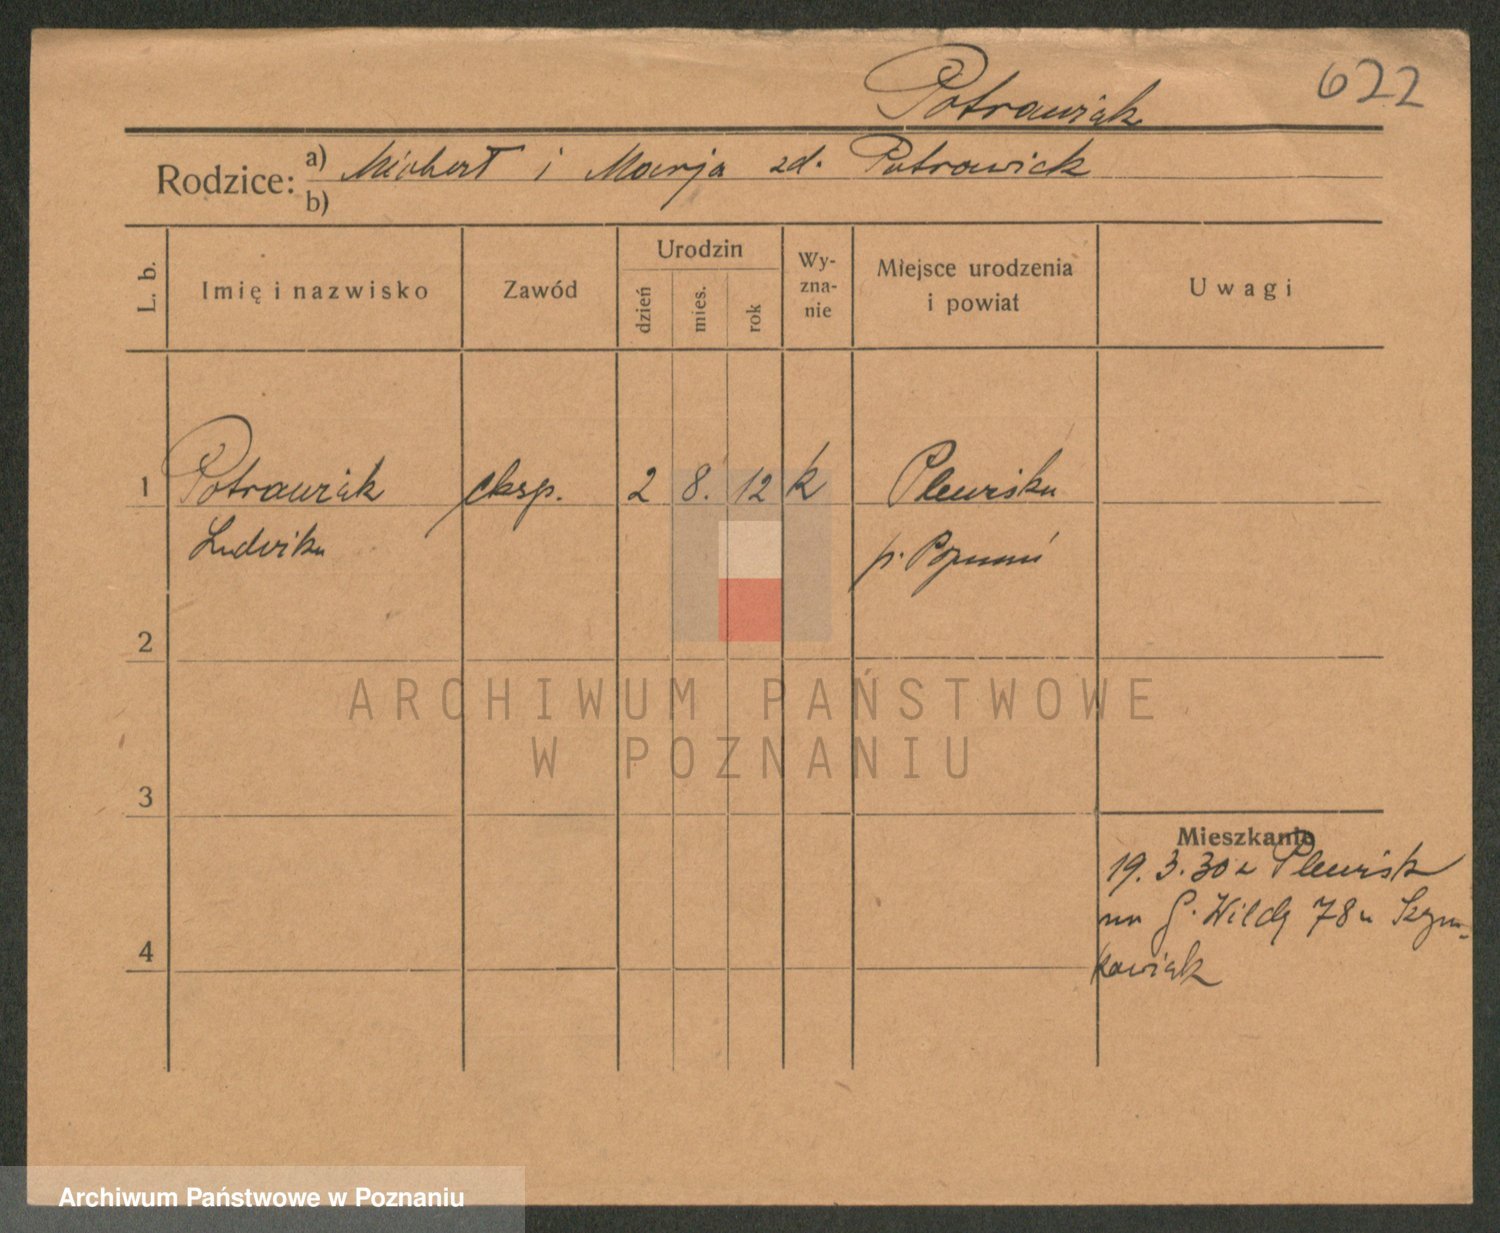 Potrawiak
622
Rodzice: a) Michał i Marja zd. Potrawiak
b)
L. b.
Imię i nazwisko
Zawód
Urodzin
dzień
mies.
rok
Wy-
zna-
nie
Miejsce urodzenia
i powiat
Uwagi
1 Potrawiak eksp. 2 8. 12 k Plewiska
Ludwika p. Poznań
2
3
4
Mieszkanie
19. 3. 30 z Plewisk
na G. Wildę 78 u Szym-
kowiak
ARCHIWUM PAŃSTWOWE
W POZNANIU
Archiwum Państwowe w Poznaniu